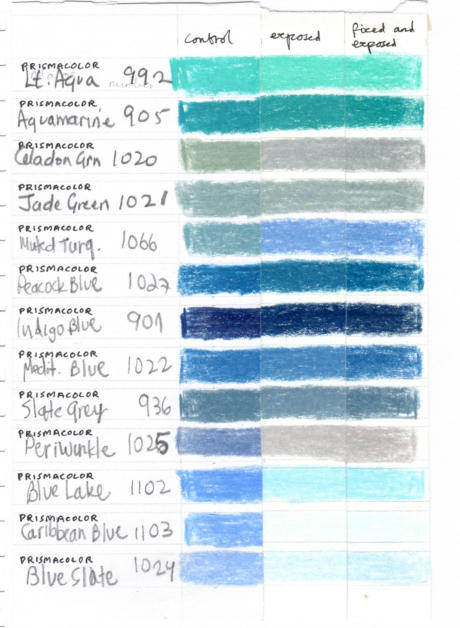 control exposed fixed and exposed
PRISMACOLOR
Lt. Aqua 992
PRISMACOLOR
Aquamarine 905
PRISMACOLOR
Celadon Grn 1020
PRISMACOLOR
Jade Green 1021
PRISMACOLOR
Muted Turq. 1066
PRISMACOLOR
Peacock Blue 1027
PRISMACOLOR
Indigo Blue 901
PRISMACOLOR
Medit. Blue 1022
PRISMACOLOR
Slate Grey 936
PRISMACOLOR
Periwinkle 1025
PRISMACOLOR
Blue Lake 1102
PRISMACOLOR
Caribbean Blue 1103
PRISMACOLOR
Blue Slate 1024